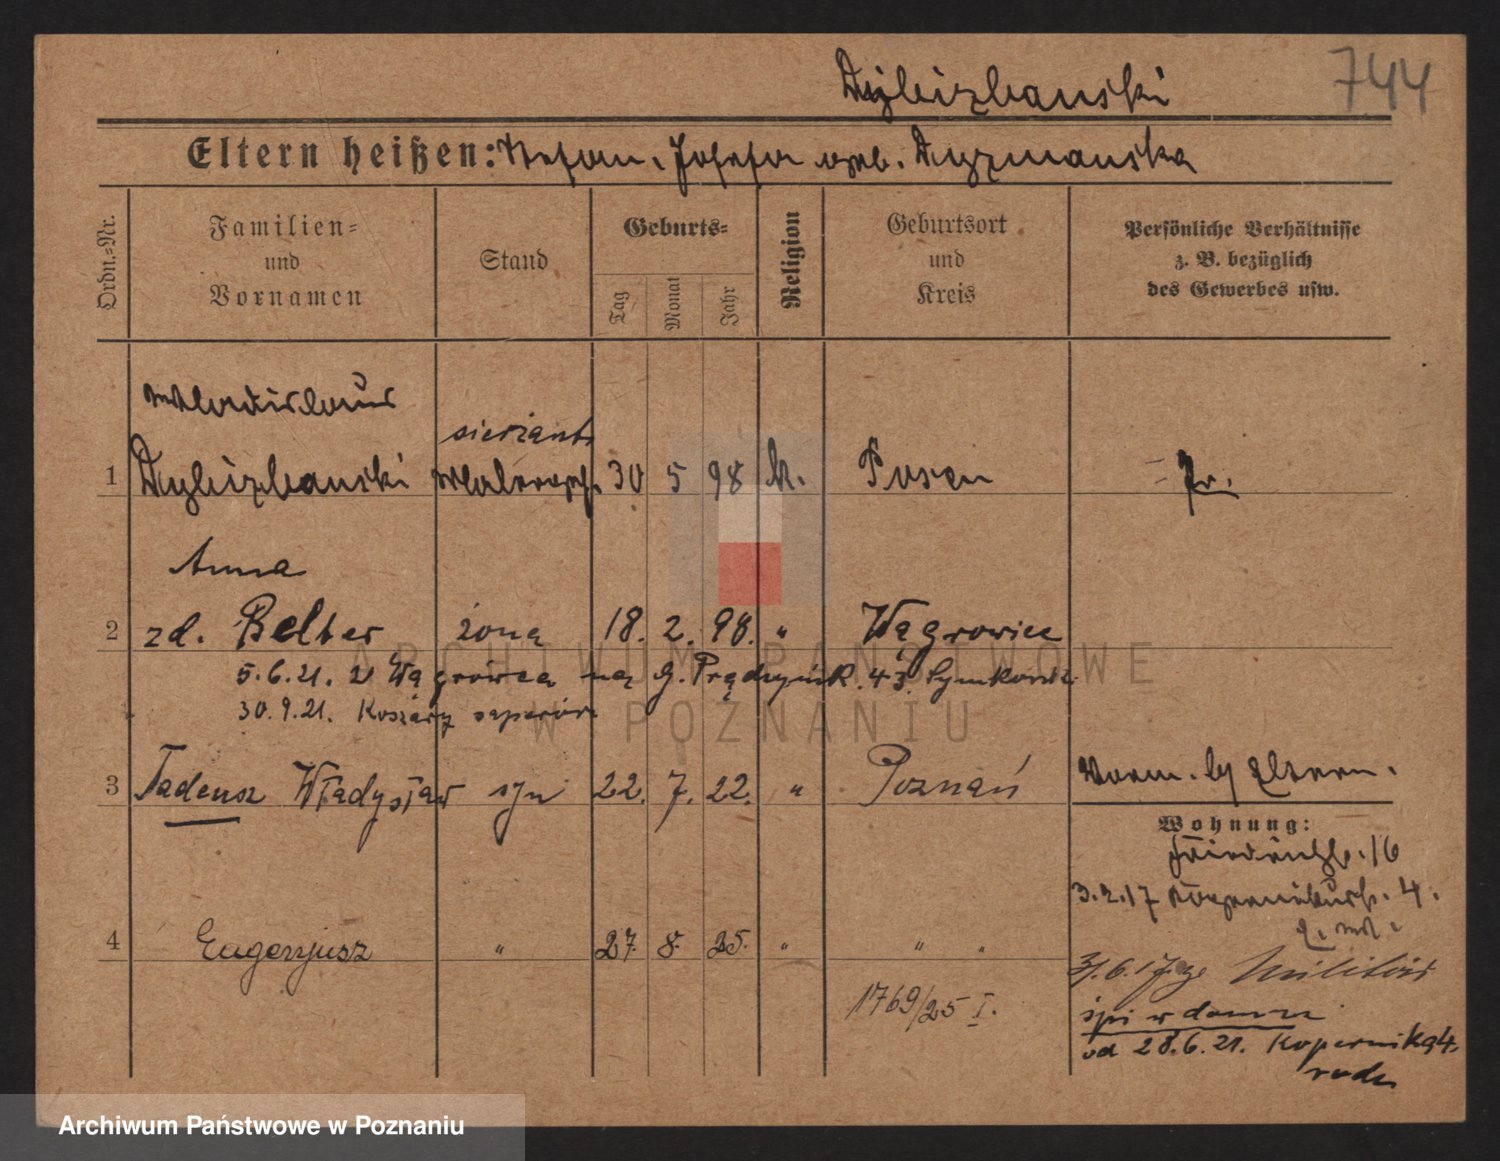 744
Eltern heißen: Stefan, Josefa geb.
Ordn.-Nr.
Familien-
und
Vornamen
Stand
Geburts-
Tag
Monat
Jahr
Religion
Geburtsort
und
Kreis
Persönliche Verhältnisse
z. B. bezüglich
des Gewerbes usw.
Wladislaus
sierżant
1 30 5 98 k. Posen Pr.
Anna
2 zd. Belter żona 18. 2. 98. " Wągrowiec
5.6.21. z Wągrówca na G. Prądzyńsk. 43
30.9.21. Koszary saperów
3 Tadeusz Władysław syn 22. 7. 22. " Poznań
Vorm. by Eltern.
Wohnung:
16
3.2.17 4.
4 Eugenjusz " 27. 8. 25. " " "
zu Militär
1769/25 I.
śpi w domu
od 28.6.21. Kopernika 4.
rodz.
ARCHIWUM PAŃSTWOWE
W POZNANIU
Archiwum Państwowe w Poznaniu